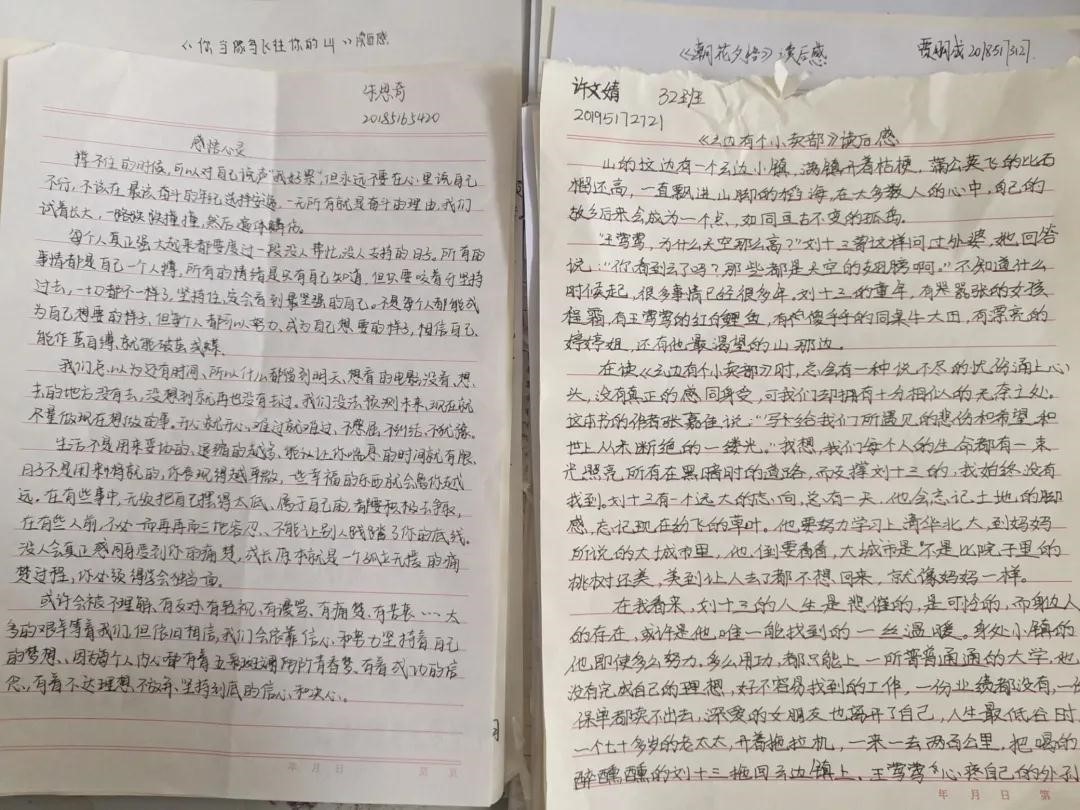 《你当像鸟飞往你的山》读后感
20185165420
感悟心灵
撑不住的时候,可以对自己说声“我好累”,但永远不要在心里说自己
不行。不该在最该奋斗的年纪选择安逸。一无所有就是奋斗的理由。我们
试着长大,一路跌跌撞撞,然后遍体鳞伤。
每个人真正强大起来都要度过一段没人帮忙,没人支持的日子。所有的
事情都是自己一个人撑,所有的情绪是只有自己知道,但只要咬着牙坚持
过去,一切都不一样了,坚持住,定会看到最坚强的自己。不是每个人都能成
为自己想要的样子,但每个人都可以努力,成为自己想要的样子,相信自己
能作茧自缚,就能破茧成蝶。
我们总以为还有时间、所以什么都留到明天、想看的电影没看、想
去的地方没有去,没想到就再也没有去过。我们没法预测未来,现在就
尽量做现在想做的事。开心就开心,难过就难过,不委屈、不纠结、不犹豫。
生活不是用来妥协的、退缩的越多,能让让你喘息的时间就有限、
日子不是用来将就的,你表现得越卑微,一些幸福的东西就会离你越
远。在有些事中,无须把自己摆得太低、属于自己的,都要积极去争取,
在有些人前,不必一而再再而三地容忍、不能让别人践踏了你的底线。
没人会真正感同身受到你的痛楚,成长原本就是一个孤立无援的痛
楚过程,你必须得学会独当一面。
或许会被不理解、有反对、有轻视、有谩骂、有痛楚、有苦衷……太
多的艰辛等着我们,但依旧相信,我们会依靠信心和努力坚持着自己
的梦想、因为每个人内心都有着五彩斑斓的青春梦、有着成功的信
念、有着不达理想不放弃、坚持到底的信心和决心。
年 月 日 第 页
《朝花夕拾》读后感 贾明成 20185173127.
许文婧 32班
20195172721
《云边有个小卖部》读后感
山的这边有一个云边小镇,满镇开着桔梗,蒲公英飞的比石
榴还高,一直飘进山脚的稻海,在大多数人的心中,自己的
故乡后来会成为一个点,如同亘古不变的孤岛。
“王莺莺,为什么天空那么高?”刘十三曾这样问过外婆,她回答
说:“你看到云了吗?那些都是天空的翅膀啊。”不知道什么
时候起,很多事情已经很多年。刘十三的童年,有嚣张的女孩
程霜,有王莺莺的红烧鲤鱼,有傻乎乎的同桌牛大田,有漂亮的
婷婷姐,还有他最渴望的山那边。
在读《云边有个小卖部》时,总会有一种说不尽的忧伤涌上心
头,没有真正的感同身受,可我们却拥有十分相似的无奈之处。
这本书的作者张嘉佳说:“写给我们所遇见的悲伤和希望,和
世上从未断绝的一缕光。”我想,我们每个人的生命都有一束
光照亮所有在黑暗时的道路,而支撑刘十三的,我始终没有
找到,刘十三有个远大的志向,总有一天,他会忘记土地的脚
感,忘记现在纷飞的草叶。他要努力学习上清华北大,到妈妈
所说的大城市里,他倒要看看,大城市是不是比院子里的
桃树还美,美到让人去了都不想回来,就像妈妈一样。
在我看来,刘十三的人生是悲催的,是可怜的,而身边人
的存在,或许是他唯一能找到的一丝温暖。身处小镇的
他,即使多么努力,多么用功,都只能上一所普普通通的大学,他
没有完成自己的理想,好不容易找到的工作,一份业绩都没有,一份
保单都卖不出去,深爱的女朋友也离开了自己,人生最低谷时,
一个七十多岁的老太太,开着拖拉机,一来一去两百公里,把喝的
醉醺醺的刘十三拖回云边镇上,王莺莺心疼自己的外孙
年 月 日 第